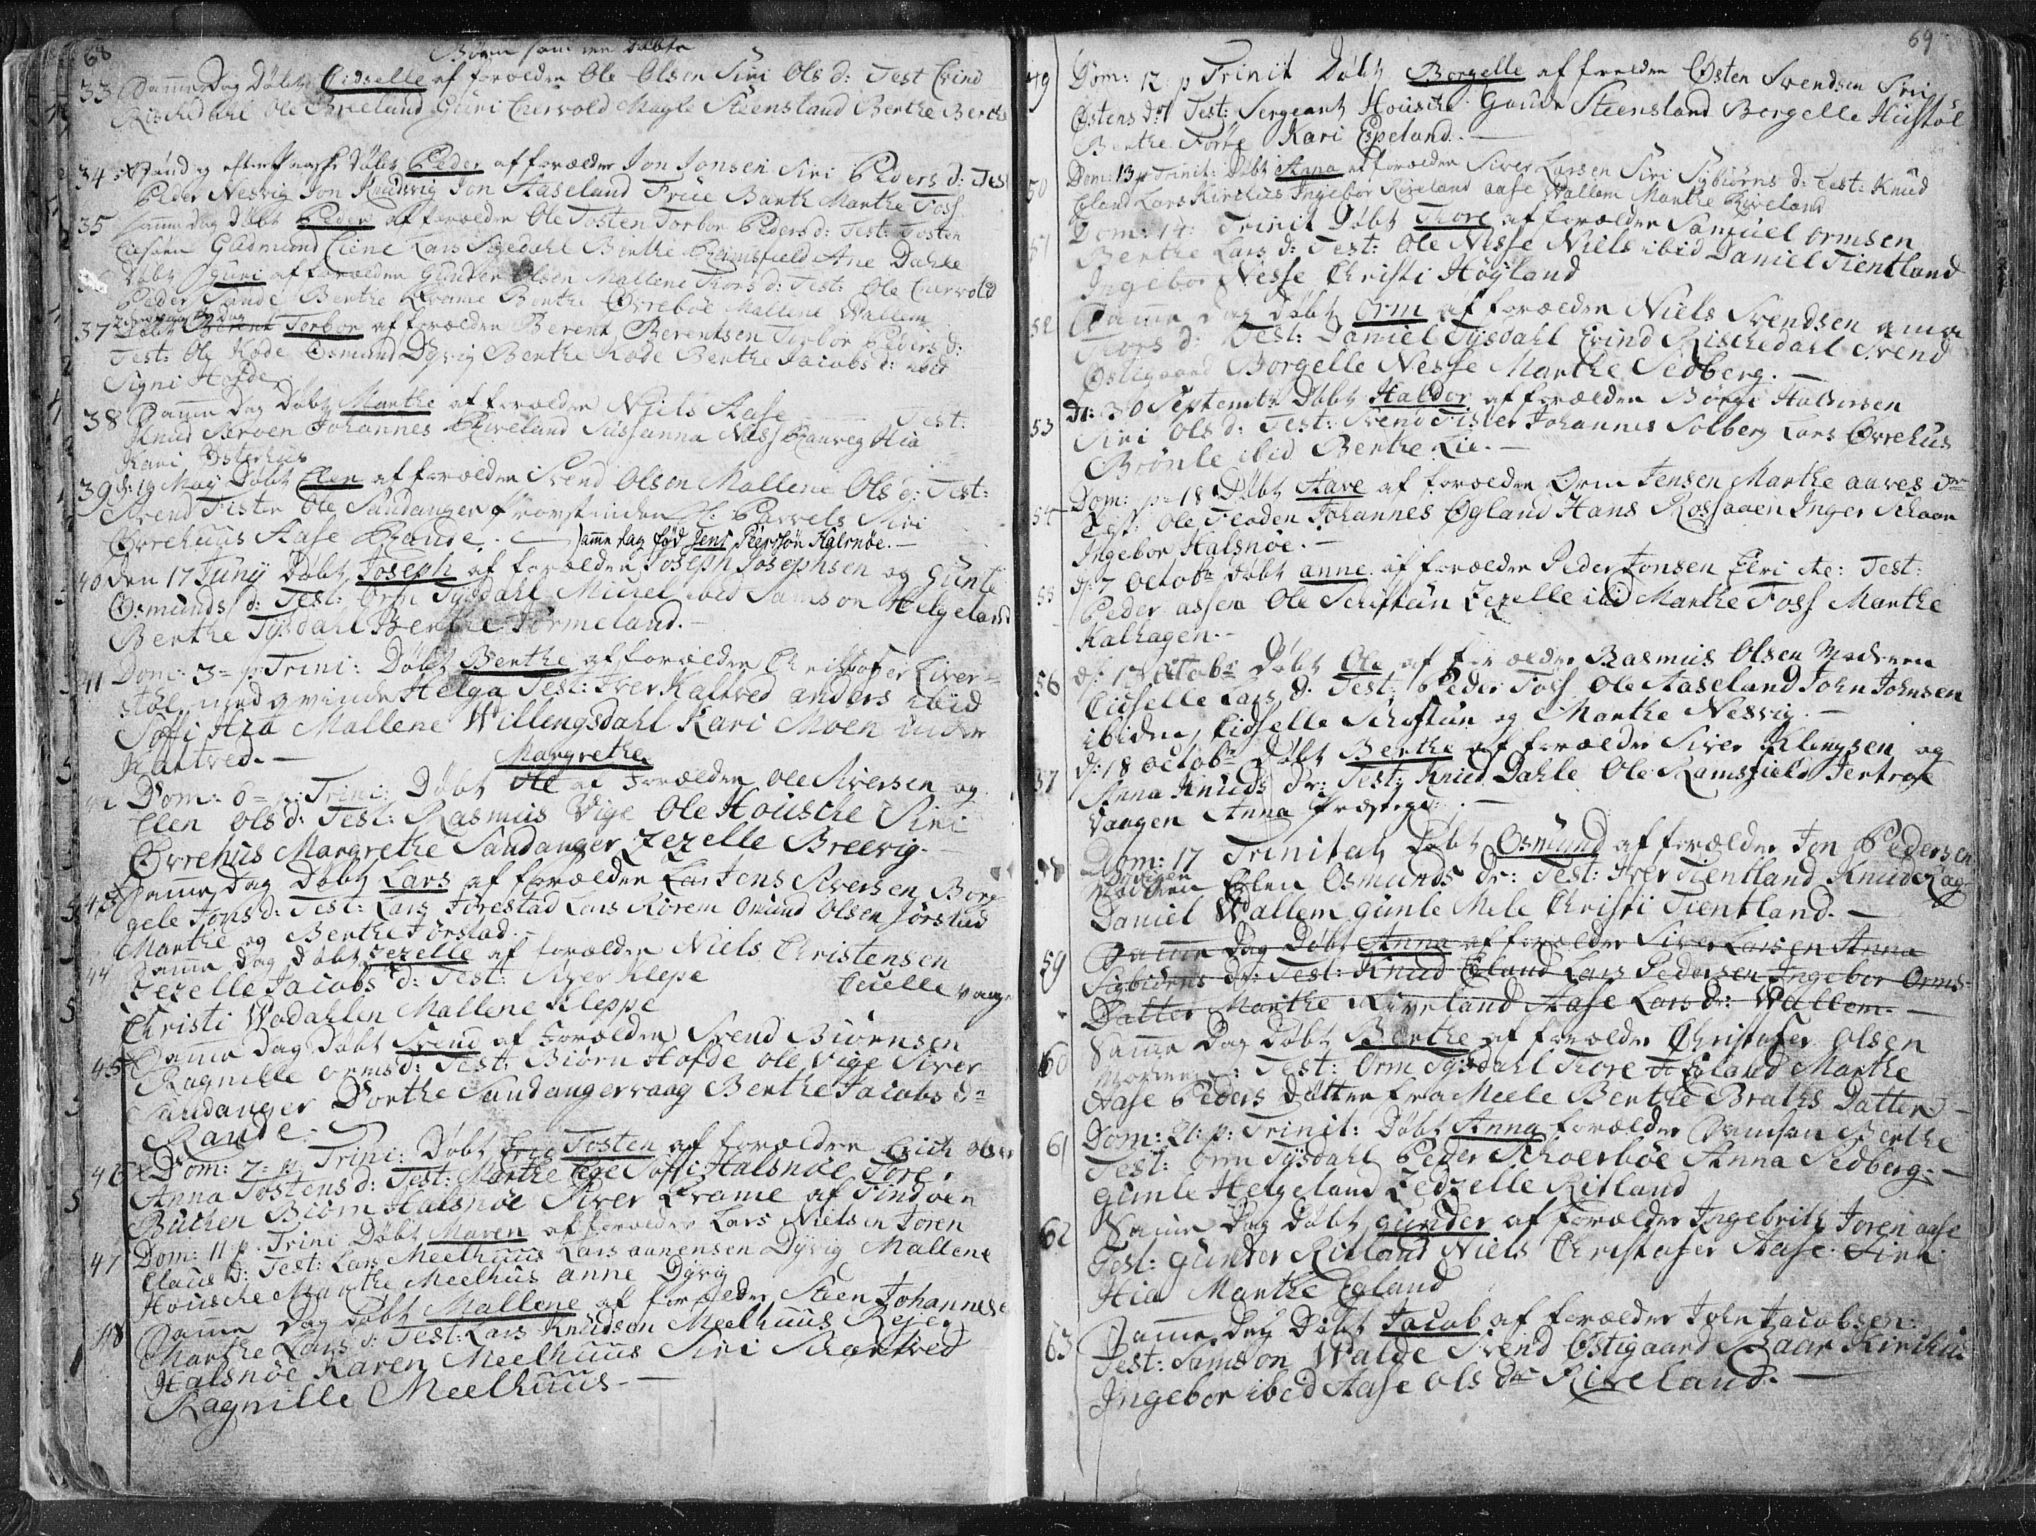 68
Børn som ere Døbte
33 Samme Dag Døbt Cidselle af forældre Ole Olsen Siri Ols d: Test Eivind
Rischedahl Ole Breeland Guri Tuervold Magle Steensland Berthe Berthe
34 Døbt Peder af forældre Jon Jonsen Siri Peders d: Test
Peder Nesvig Jon Knudsvig Jon Aaseland Frue Barth Marthe Foss
35 Samme dag Døbt Peder af forældre Ole Tosten Torbor Peders d: Test: Tosten
Gudmund Lars Berthe Ramsfield Ane Dahle
Døbt Guri af forældre Gunder Olsen Mallene Thors d: Test: Ole Tuervold
Peder Sande Berthe Krame Berthe Ørrebøe Mallene Wallem
37 Døbt Berent Torbor af forældre Berent Berentsen Torbor Peders d:
Test: Ole Kode Osmund Dyrvig Berthe Kode Berthe Jacobs d: ibid
Signi Hofde
38 Samme Dag Døbt Marthe af forældre Niels Aase Test:
Knud Johannes Riveland Sussanna Ness Ranveg Hia
Kari Østerhus
39 d: 19 Maij Døbt Elen af forældre Svend Olsen Mallene Ols d: Test:
Svend Fister Ole Sandanger Provstinden Parvels Siri
Ørrehuus Aase Rande. Samme dag fød Jens Peerssøn Halsnøe.
40 den 17 Junij Døbt Joseph af forældre Joseph Josephsen og Gunle
Osmunds d: Test: Orm Tysdahl Michel ibid Samson Helgeland
Berthe Tysdahl Berthe Førmeland.
41 Dom: 3 p Trini: Døbt Berthe af forældre Christofer Liver-
støl med qvinde Helga Test: Iver Kaltved anders ibid
Soffi Hia Mallene Willengsdahl Kari Moen
Kaltved.
Margrethe
Dom: 6 p: Trini: Døbt Ole af Forældre Ole Siversen og
Elen Ols d: Test: Rasmus Vige Ole Housche Siri
Ørrehus Margrethe Sandanger Zezelle Breevig.
43 Samme Dag Døbt Lars af forældre Lar Jens Siversen Bor
gele Jons d: Test: Lars Jørestad Lars Rørem Omund Olsen Jørstad
Marthe og Berthe Jørstad.
44 Samme dag døbt Zezelle af forældre Niels Christensen
Zezelle Jacobs d: Test: Siver Klepe Cicelle vaage
Christi Wadahlen Mallene Kleppe
45 Samme Dag Døbt Svend af Forældre Svend Biørnsen
Ragnille Orms d: Test: Biørn Hofde Ole Vige Siver
Sandanger Dorthe Sandangervaag Berthe Jacobs d
Rande.
46 Dom: 7: p Trini: Døbt Eric Tosten af forældre Erich Olsen
Anna Tostens d: Test: Marthe Ege Soffi Halsnøe Tore
Buchen Biørn Halsnøe Siver Krame af Findøen
47 Dom: 11 p. Trini Døbt Maren af forældre Lars Nielsen Joren
Claus d: Test: Lars Meelhuus Lars aanensen Dyrvig Mallene
Housche Marthe Meelhus anne Dyrvig
48 Samme Dag Døbt Mallene af forældre Steen Johannese
Marthe Lars d: Test: Lars Knudson Meelhuus Rejer
Halsnøe Karen Meelhuus Siri Schartved
Ragnille Meelhuus.
69
49 Dom: 12 p Trinit Døbt Borgelle af forældre Østen Svendsen Siri
Østens d: Test: Sergeant Housche Gaude Steensland Borgelle Hustøl
Berthe Førre Kari Epeland.
50 Dom: 13 p Trinit: Døbt Anna af forældre Siver Larsen Siri Sybiørns d: Test: Knud
Eland Lars Kirchus Ingebor Riveland aase Wallem Marthe Riveland
51 Dom: 14: Trinit Døbt Thore af forældre Samuel Ormsen
Berthe Lars d: Test: Ole Nesse Niels ibid Daniel Tientland
Ingebor Nesse Christi Høyland
52 Samme Dag Døbt Orm af forældre Niels Svendsen anna
Thors d: Test: Daniel Tysdahl Eivind Rischedahl Svend
Østigaard Borgelle Nesse Marthe Sedberg.
53 D: 30 Septembr Døbt Haldor af forældre Børge Halversen
Siri Ols d: Test: Svend Fister Johannes Solberg Lars Ørrehus
Brønle ibid Berthe Lie.
54 Dom: p: 18 Døbt Aare af forældre Orm Jensen Marthe aares dr
Test: Ole Floden Johannes Øgland Hans Rossaaen Inger Schaar
Ingebor Halsnøe.
55 d: 7 Octobr Døbt anne af forældre Peder Jonsen Elri Test:
Peder assen Ole Schiftun Zezelle ibid Marthe Foss Marthe
Kalhagen.
56 d: 17 Octobr Døbt Ole af forældre Rasmus Olsen Moderen
Cidselle Lars d: Test: Peder Foss Ole Aaseland John Johnsen
ibidem Cidselle Schiftun og Marthe Nesvig.
57 d: 18 Octobr Døbt Berthe af forældre Siver Klengsen og
Anna Knuds dr: Test: Knud Dahle Ole Ramsfield Jertrue
Vaagen Anna Præsteg:
58 Dom: 17 Trinitat Døbt Osmund af forældre Jon Pedersen
Moderen Elen Osmunds dr: Test: Iver Tientland Knud Rag
Daniel Wallem Gunle Mele Christi Tientland.
59 Samme Dag Døbt Anna af forældre Siver Larsen Anna
Sigbiørns dr: Test: Knud Eland Lars Pedersen Ingebor Orms-
Datter Marthe Riveland Aase Lars dr: Wallem.
60 Samme Dag Døbt Berthe af forældre Christofer Olsen
Test: Orm Tysdahl Tore Eland Marthe
Aase Peders Datter fra Meele Berthe Braths Datter
61 Dom: 21: p: Trinit: Døbt Anna forældre Samson Berthe
Test: Orm Tysdahl Peder Schoerbøe Anna Sedberg.
Gunle Helgeland Zedzelle Ritland
62 Samme Dag Døbt Gunder af forældre Ingebrith Joren aase
Test: Gunder Ritland Niels Christofer Aase Siri
Hia Marthe Egland
63 Samme Dag Døbt Jacob af forældre John Jacobsen:
Test: Samson Walde Svend Østigaard Baar Kirchus
Ingebor ibid Aase Ols dr Riveland.